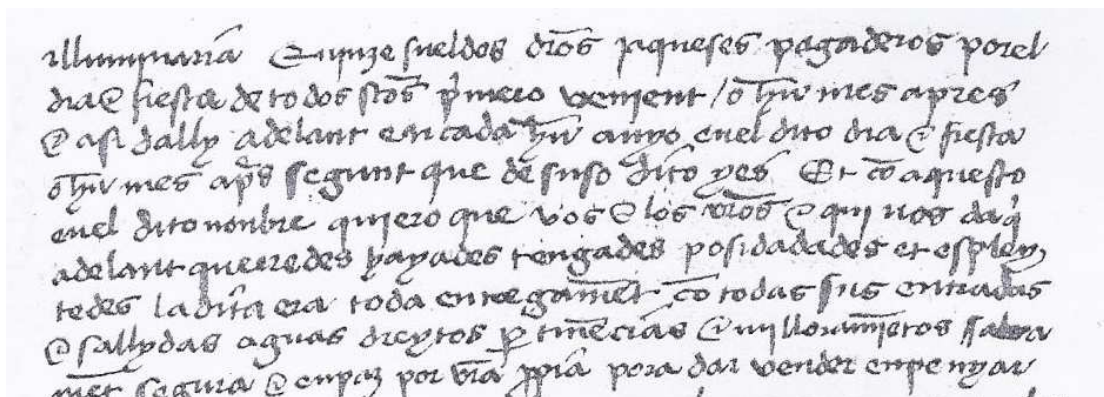 illuminaria Et unze sueldos dros jaqueses pagaderos por el
dia & fiesta de todos stos pmero venient / o hun mes apres
& asi dally adelant en cada hun anyo en el dito dia & fiesta
o hun mes aps segunt que de suso dito yes Et co aquesto
en el dito nonbre quiero que vos & los vros & qui vos daq
adelant querredes hayades tengades posidadades et espley
tedes la dita era toda entregament co todas sus entradas
& sallydas aguas dreytos ptinecias & milloramietos salva
met segura & en paz por vra ppia pora dar vender enpenyar